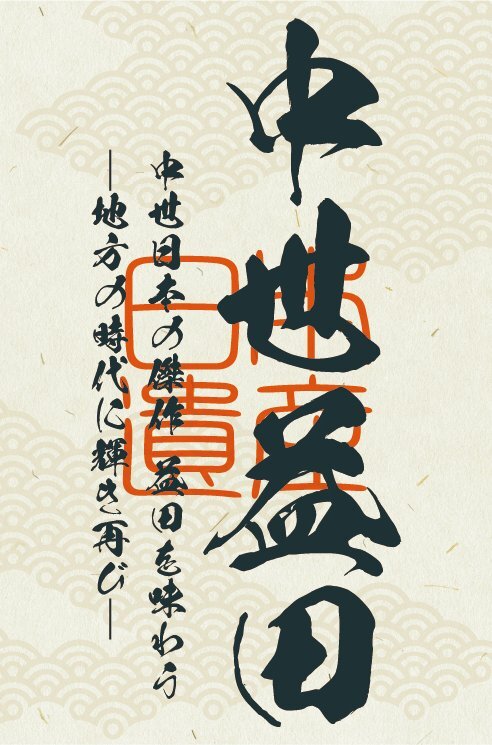 中世益田
中世日本の傑作 益田を味わう
―地方の時代に輝き再び―
日本
遺産